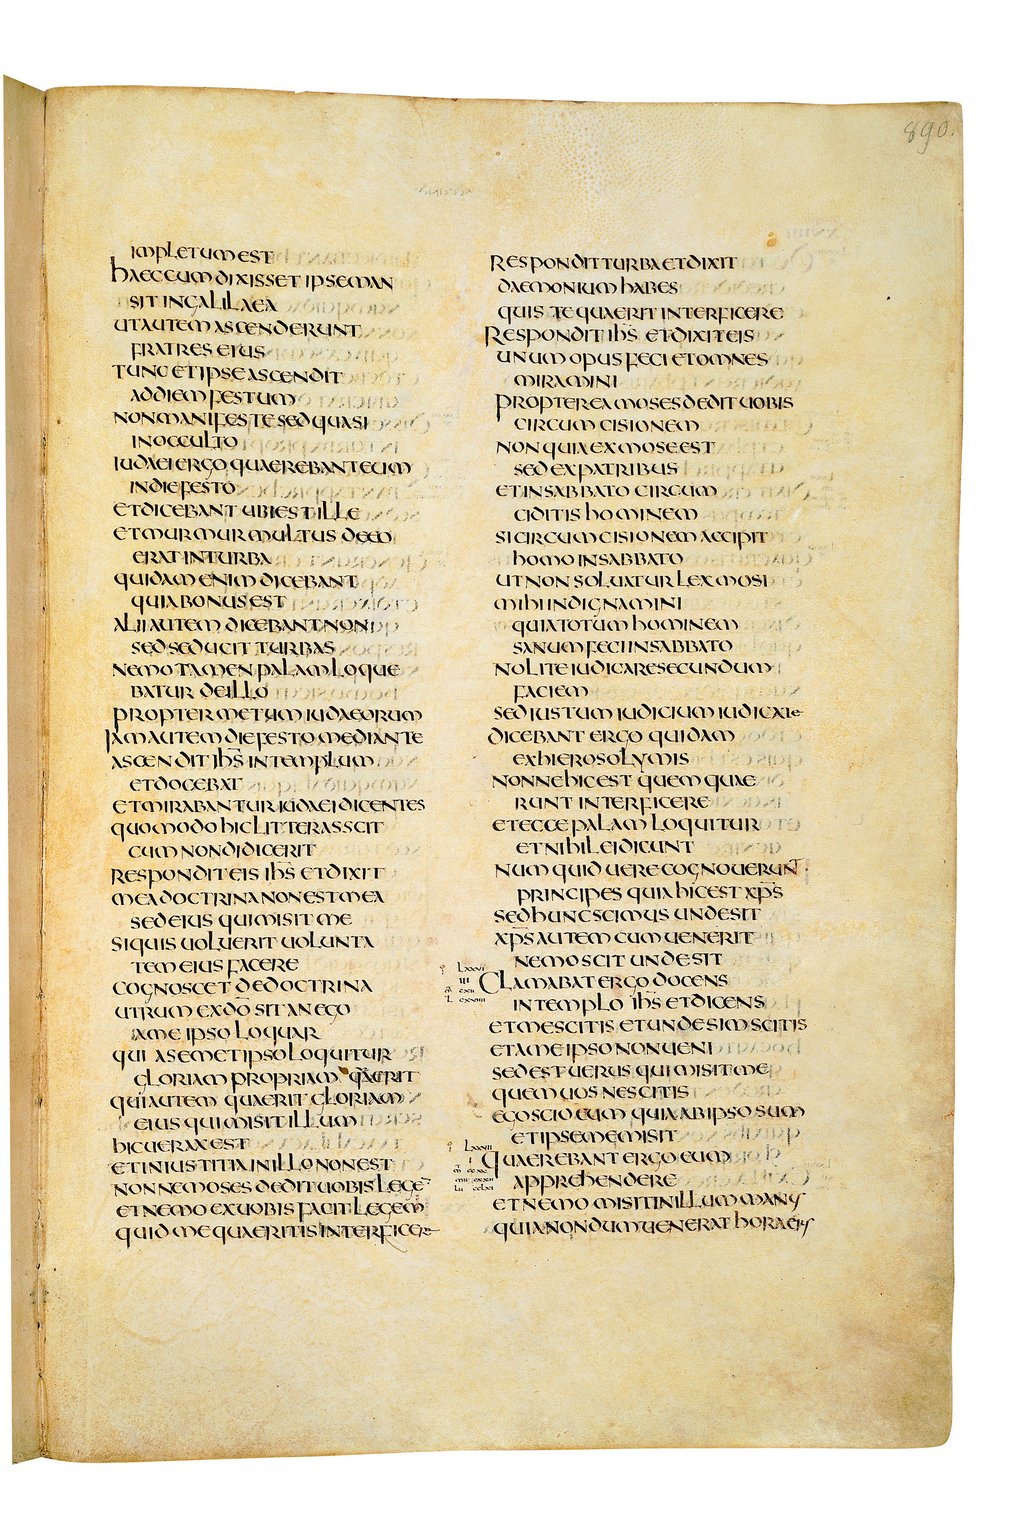 890.
IMPLETUM EST
HAEC CUM DIXISSET IPSE MAN
SIT IN GALILAEA
UT AUTEM ASCENDERUNT
FRATRES EIUS
TUNC ET IPSE ASCENDIT
AD DIEM FESTUM
NON MANIFESTE SED QUASI
IN OCCULTO
IUDAEI ERGO QUAEREBANT EUM
IN DIE FESTO
ET DICEBANT UBI EST ILLE
ET MURMUR MULTUS DE EO
ERAT IN TURBA
QUIDAM ENIM DICEBANT
QUIA BONUS EST
ALII AUTEM DICEBANT NON
SED SEDUCIT TURBAS
NEMO TAMEN PALAM LOQUE
BATUR DE ILLO
PROPTER METUM IUDAEORUM
IAM AUTEM DIE FESTO MEDIANTE
ASCENDIT IHS IN TEMPLUM
ET DOCEBAT
ET MIRABANTUR IUDAEI DICENTES
QUOMODO HIC LITTERAS SCIT
CUM NON DIDICERIT
RESPONDIT EIS IHS ET DIXIT
MEA DOCTRINA NON EST MEA
SED EIUS QUI MISIT ME
SI QUIS UOLUERIT UOLUNTA
TEM EIUS FACERE
COGNOSCET DE DOCTRINA
UTRUM EX DO SIT AN EGO
A ME IPSO LOQUAR
QUI A SEMET IPSO LOQUITUR
GLORIAM PROPRIAM QAERIT
QUI AUTEM QUAERIT GLORIAM
EIUS QUI MISIT ILLUM
HIC UERAX EST
ET INIUSTITIA IN ILLO NON EST
NONNE MOSES DEDIT UOBIS LEGE
ET NEMO EX UOBIS FACIT LEGEM
QUID ME QUAERITIS INTERFICERE
RESPONDIT TURBA ET DIXIT
DAEMONIUM HABES
QUIS TE QUAERIT INTERFICERE
RESPONDIT IHS ET DIXIT EIS
UNUM OPUS FECI ET OMNES
MIRAMINI
PROPTEREA MOSES DEDIT UOBIS
CIRCUMCISIONEM
NON QUIA EX MOSE EST
SED EX PATRIBUS
ET IN SABBATO CIRCUM
CIDITIS HOMINEM
SI CIRCUMCISIONEM ACCIPIT
HOMO IN SABBATO
UT NON SOLUATUR LEX MOSI
MIHI INDIGNAMINI
QUIA TOTUM HOMINEM
SANUM FECI IN SABBATO
NOLITE IUDICARE SECUNDUM
FACIEM
SED IUSTUM IUDICIUM IUDICATE
DICEBANT ERGO QUIDAM
EX HIEROSOLYMIS
NONNE HIC EST QUEM QUAE
RUNT INTERFICERE
ET ECCE PALAM LOQUITUR
ET NIHIL EI DICUNT
NUM QUID UERE COGNOUERUNT
PRINCIPES QUIA HIC EST XPS
SED HUNC SCIMUS UNDE SIT
XPS AUTEM CUM UENERIT
NEMO SCIT UNDE SIT
LXXVI
III
CLAMABAT ERGO DOCENS
IN TEMPLO IHS ET DICENS
ET ME SCITIS ET UNDE SIM SCITIS
ET A ME IPSO NON UENI
SED EST UERUS QUI MISIT ME
QUEM UOS NESCITIS
EGO SCIO EUM QUIA AB IPSO SUM
ET IPSE ME MISIT
LXXVII
I
QUAEREBANT ERGO EUM
APPREHENDERE
ET NEMO MISIT IN ILLUM MANUS
QUIA NONDUM UENERAT HORA EIUS